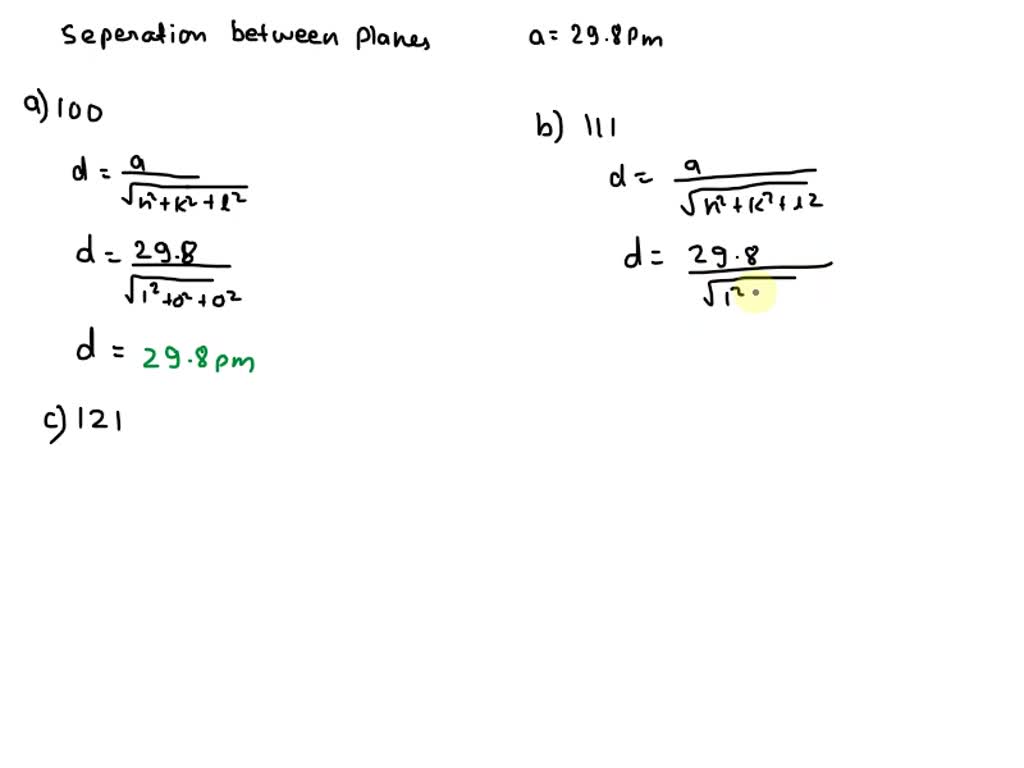 Seperation between planes a = 29.8 pm
a) 100
d = a / √h²+k²+l²
d = 29.8 / √1²+0²+0²
d = 29.8 pm
b) 111
d = a / √h²+k²+l²
d = 29.8 / √1²
c) 121